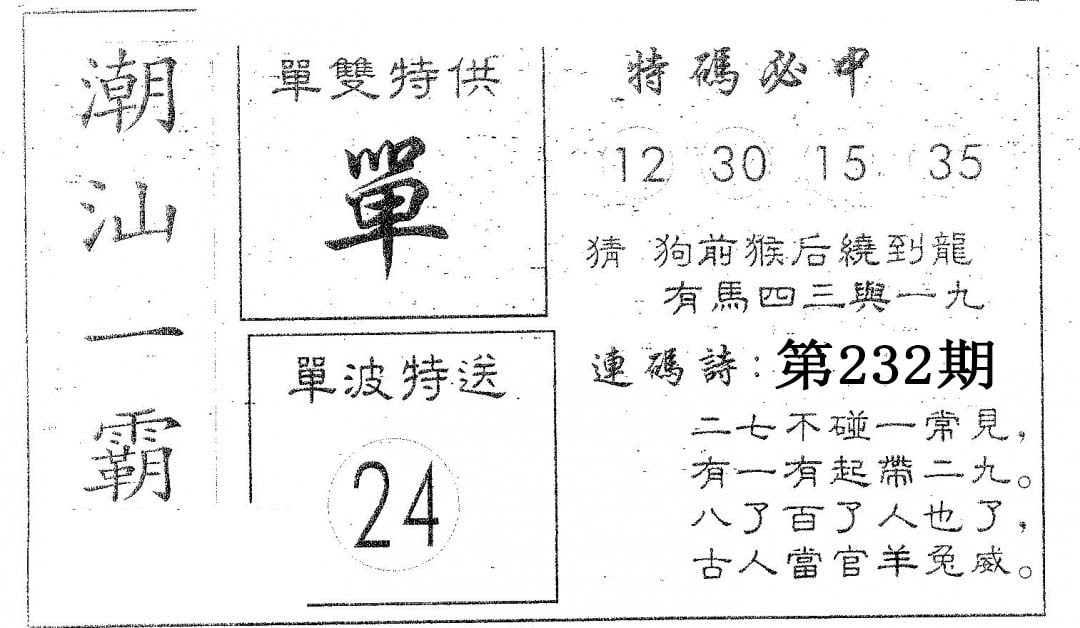 潮汕一霸
單雙特供
單
單波特送
24
特碼必中
12 30 15 35
猜 狗前猴后繞到龍
有馬四三與一九
連碼詩：第232期
二七不碰一常見，
有一有起帶二九。
八了百了人也了，
古人當官羊兔威。